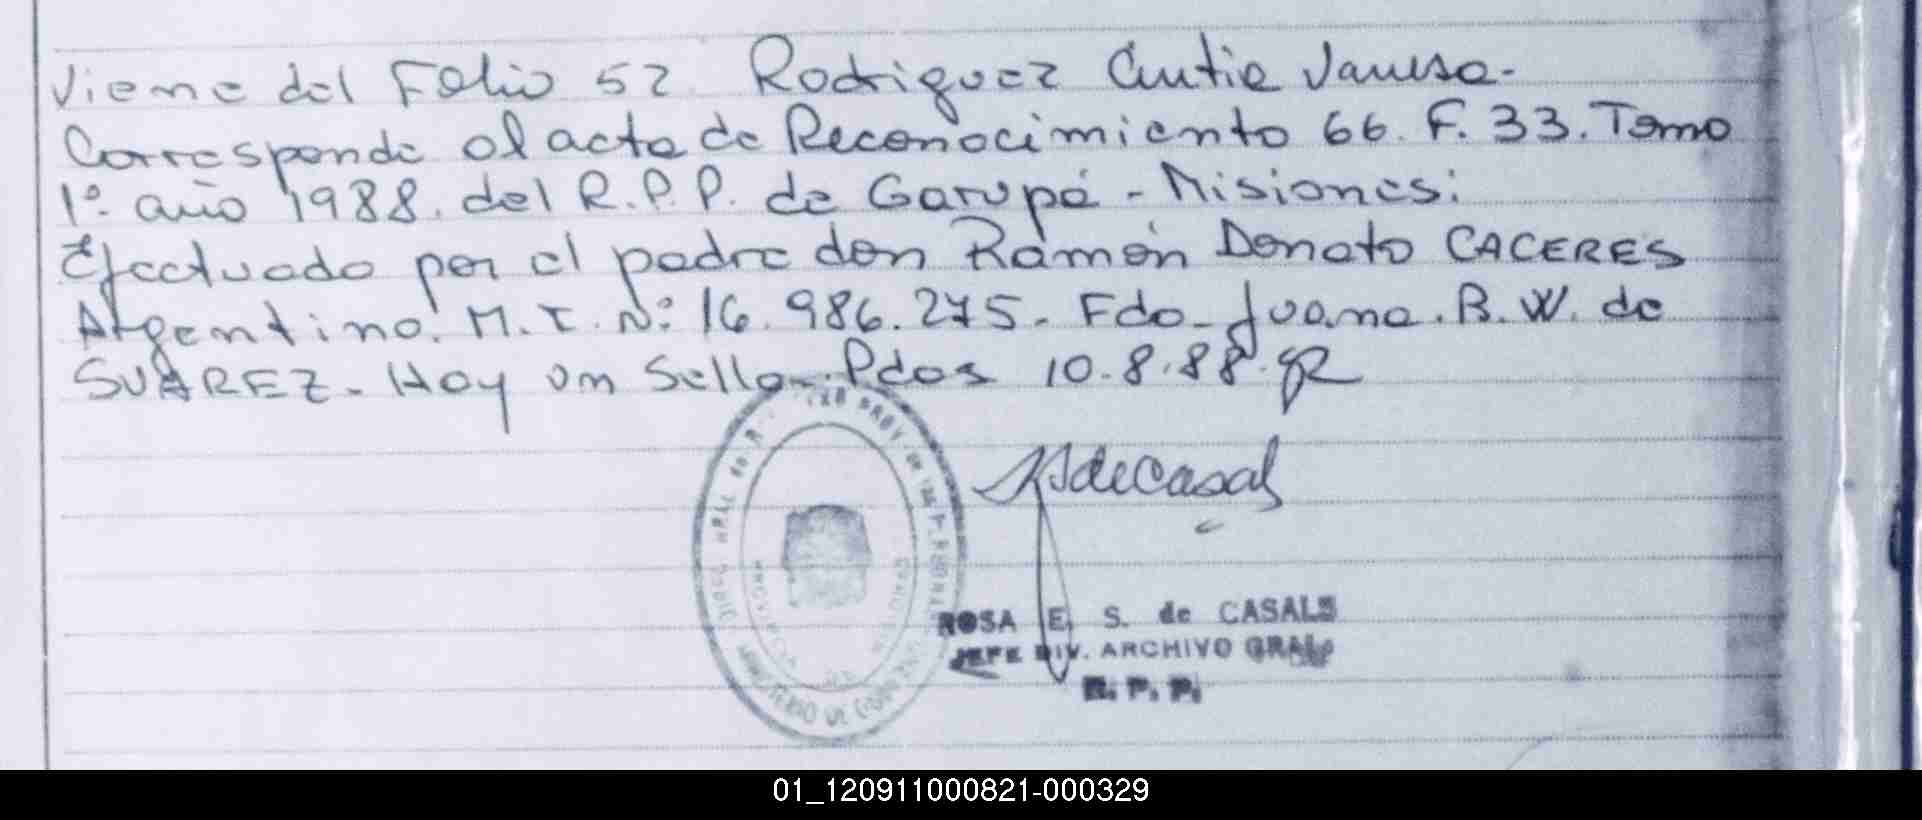 Viene del Folio 52 Rodriguez Cintia Vanesa.-
Corresponde al acta de Reconocimiento 66. F. 33. Tomo
1º. año 1988. del R.P.P. de Garupá - Misiones:
Efectuado por el padre don Ramón Donato CACERES
Argentino. M.I. Nº: 16.986.275. Fdo. Juana. B. W. de
SUAREZ. Hay un Sello. Pdas 10.8.88.
ROSA E. S. de CASALS
JEFE DIV. ARCHIVO GRAL.
R. P. P.
MINISTERIO DE GOBIERNO
01_120911000821-000329